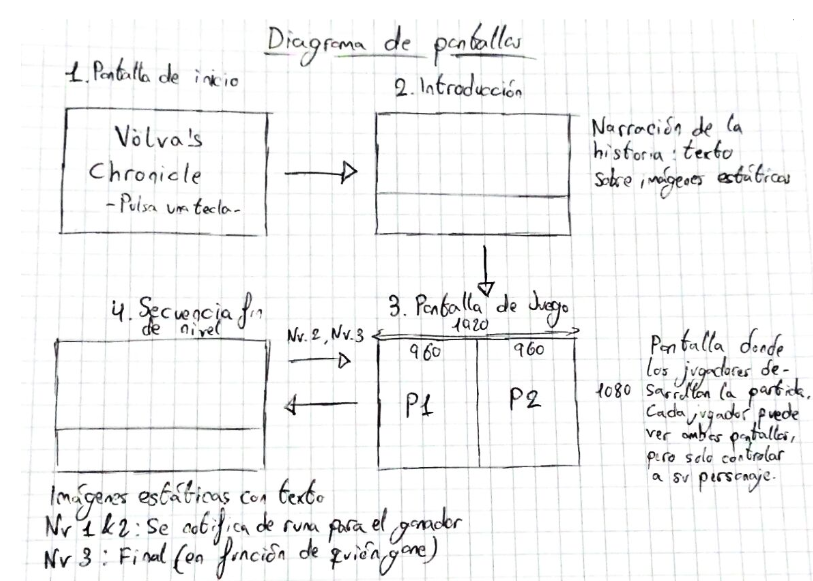 Diagrama de pantallas
1. Pantalla de inicio
Völva's
Chronicle
-Pulsa una tecla-
2. Introducción
Narración de la
historia: texto
sobre imágenes estáticas
3. Pantalla de Juego
1920
960
960
P1
P2
1080
Pantalla donde
los jugadores de-
sarrollan la partida.
Cada jugador puede
ver ambas pantallas,
pero solo controlar
a su personaje.
4. Secuencia fin
de nivel
Nv. 2, Nv. 3
Imágenes estáticas con texto
Nv 1 & 2: Se notifica de runa para el ganador
Nv 3: Final (en función de quién gane)